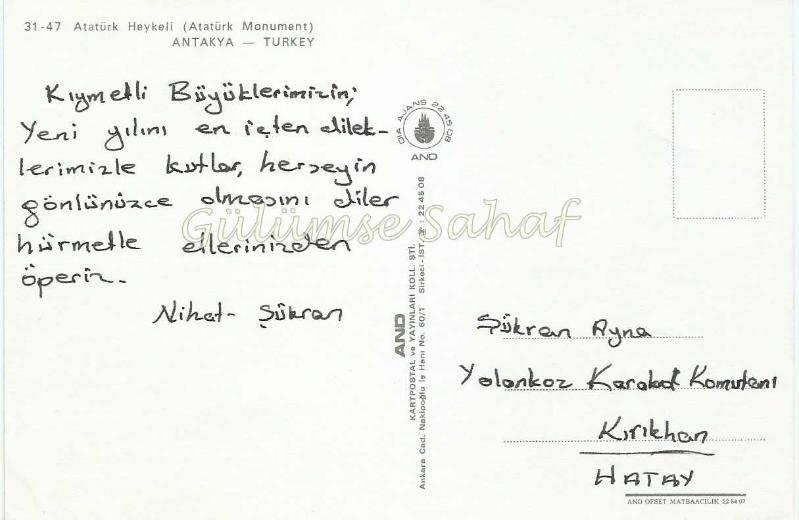 31-47 Atatürk Heykeli (Atatürk Monument)
ANTAKYA — TURKEY
Kıymetli Büyüklerimizin;
Yeni yılını en içten dilek-
lerimizle kutlar, herşeyin
gönlünüzce olmasını diler
hürmetle ellerinizden
öperiz.
Nihat - Şükran
DIA AJANS 22 45 08
AND
AND
KARTPOSTAL ve YAYINLARI KOLL. ŞTİ.
Ankara Cad. Nakipoğlu İş Hanı No. 60/1 Sirkeci-İST. ☎: 22 45 08
Gülümse Sahaf
Şükran Ayna
Yalankoz Karakol Komutanı
Kırıkhan
HATAY
AND OFSET MATBAACILIK 22 84 07